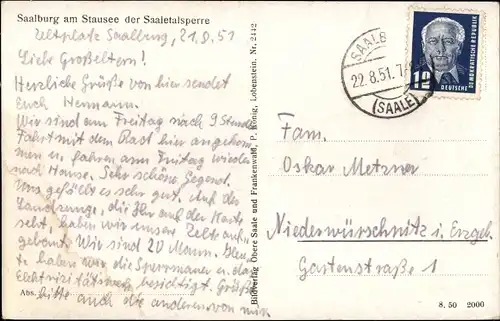 Saalburg am Stausee der Saaletalsperre
Zeltplatz Saalburg, 21.8.51
Liebe Großeltern!
Herzliche Grüße von hier sendet
Euch Hermann.
Wir sind am Freitag nach 9 Stunden
Fahrt mit dem Rast hier angekom-
men u. fahren am Freitag wieder
nach Hause. Sehr schöne Gegend.
Uns gefällt es sehr gut. Auf der
Landzunge, die Ihr auf der Karte
seht, haben wir unsere Zelte auf-
gebaut. Wir sind 20 Mann. Heu-
te haben wir die Sperrmauer u. das
Elektrizitätswerk besichtigt. Grüßt
bitte auch die anderen von mir
Abs.
Bildverlag Obere Saale und Frankenwald, P. König, Lobenstein. Nr. 2442
SAALB
22.8.51.7
(SAALE)
12
DEUTSCHE
DEMOKRATISCHE REPUBLIK
Fam.
Oskar Metzner
Niederwürschnitz i. Erzgeb.
Gartenstraße 1
8. 50 2000